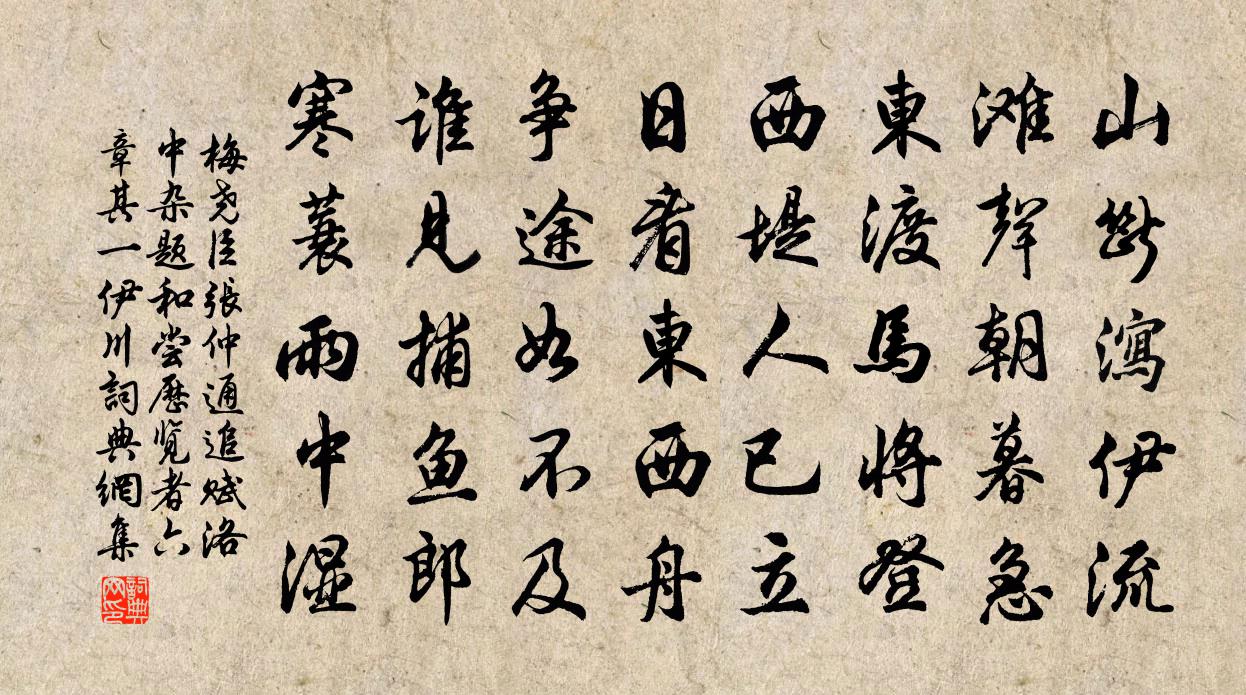 山断瀉伊流
滩聲朝暮急
東渡馬將登
西堤人已立
日看東西舟
争途如不及
谁見捕鱼郎
寒蓑雨中湿
梅尧臣張仲通追赋洛
中杂题和尝歷览者六
章其一伊川詞典網集
詞典
网印